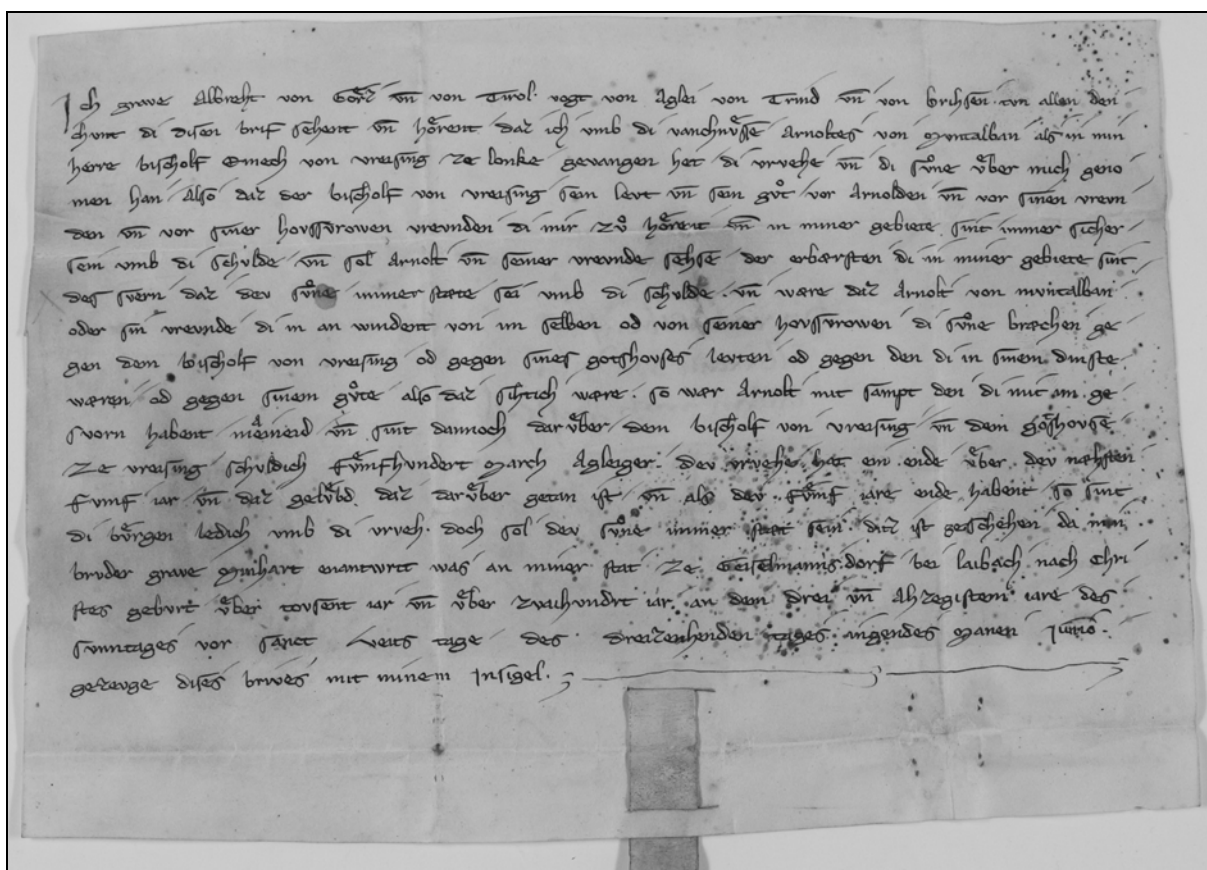 Ich grave Albreht von Goͤrz vn̄ von Tirol. vogt von Aglei von Trind vn̄ von brihsen. tvn allen den
chvnt di disen brif sehent vn̄ hoͤrent daz ich vmb di vanchnvͤsse Arnoltes von Mvntalban als in min
herre bischolf Emech von vreising ze lonke gevangen het di vrvehe vn̄ di svͦne vͤber mich geno
men han also daz der bischolf von vreising sein levt vn̄ sein gvͦt vor Arnolden vn̄ vor sinen vrevn
den vn̄ vor siner hovsvrowen vrevnden di mir zvͦ hoͤrent vn̄ in miner gebiete sint immer sicher
sein vmb di schvlde vn̄ sol Arnolt vn̄ seiner vrevnde sehse der erbærsten di in miner gebiete sint
des svern daz dev svͦne immer stæte sei vmb di schvlde. vn̄ wære daz Arnolt von mvntalban
oder sin vrevnde di in an windent von im selben od von seiner hovsvrowen di svͦne bræchen ge
gen dem bischolf von vreising od gegen sines gotshovses levten od gegen den di in sinem dinste
wæren od gegen sinem gvͦte also daz sihtich wære. so wær Arnolt mit sampt den di mit im ge
svorn habent meͣineid vn̄ sint dannoch dar vͤber dem bischolf von vreising vn̄ dem goshovse
ze vreising schvldich fvͤmfhundert March Agleiger. dev vrvehe hat ein ende vͤber dev næhsten
fvmf iar vn̄ daz gelvͤbd daz darvͤber getan ist vn̄ als dev fvͤmf iare ende habent so sint
di bvͤrgen ledich vmb di vrveh. doch sol dev svͦne immer stæt sein. daz ist geschehen da min
brvder grave Meinhart enantwrt was an miner stat ze Geiselmannisdorf bei laibach nach Chri
stes gebvrt vͤber tovsent iar vn̄ vͤber zwaihundrt iar. an dem drei vn̄ Ahzegistem iare des
svnntages vor sanct Veits tage des dreizenhenden tages ingendes Manen Junio.
gezevge dises brives mit minem Insigel.